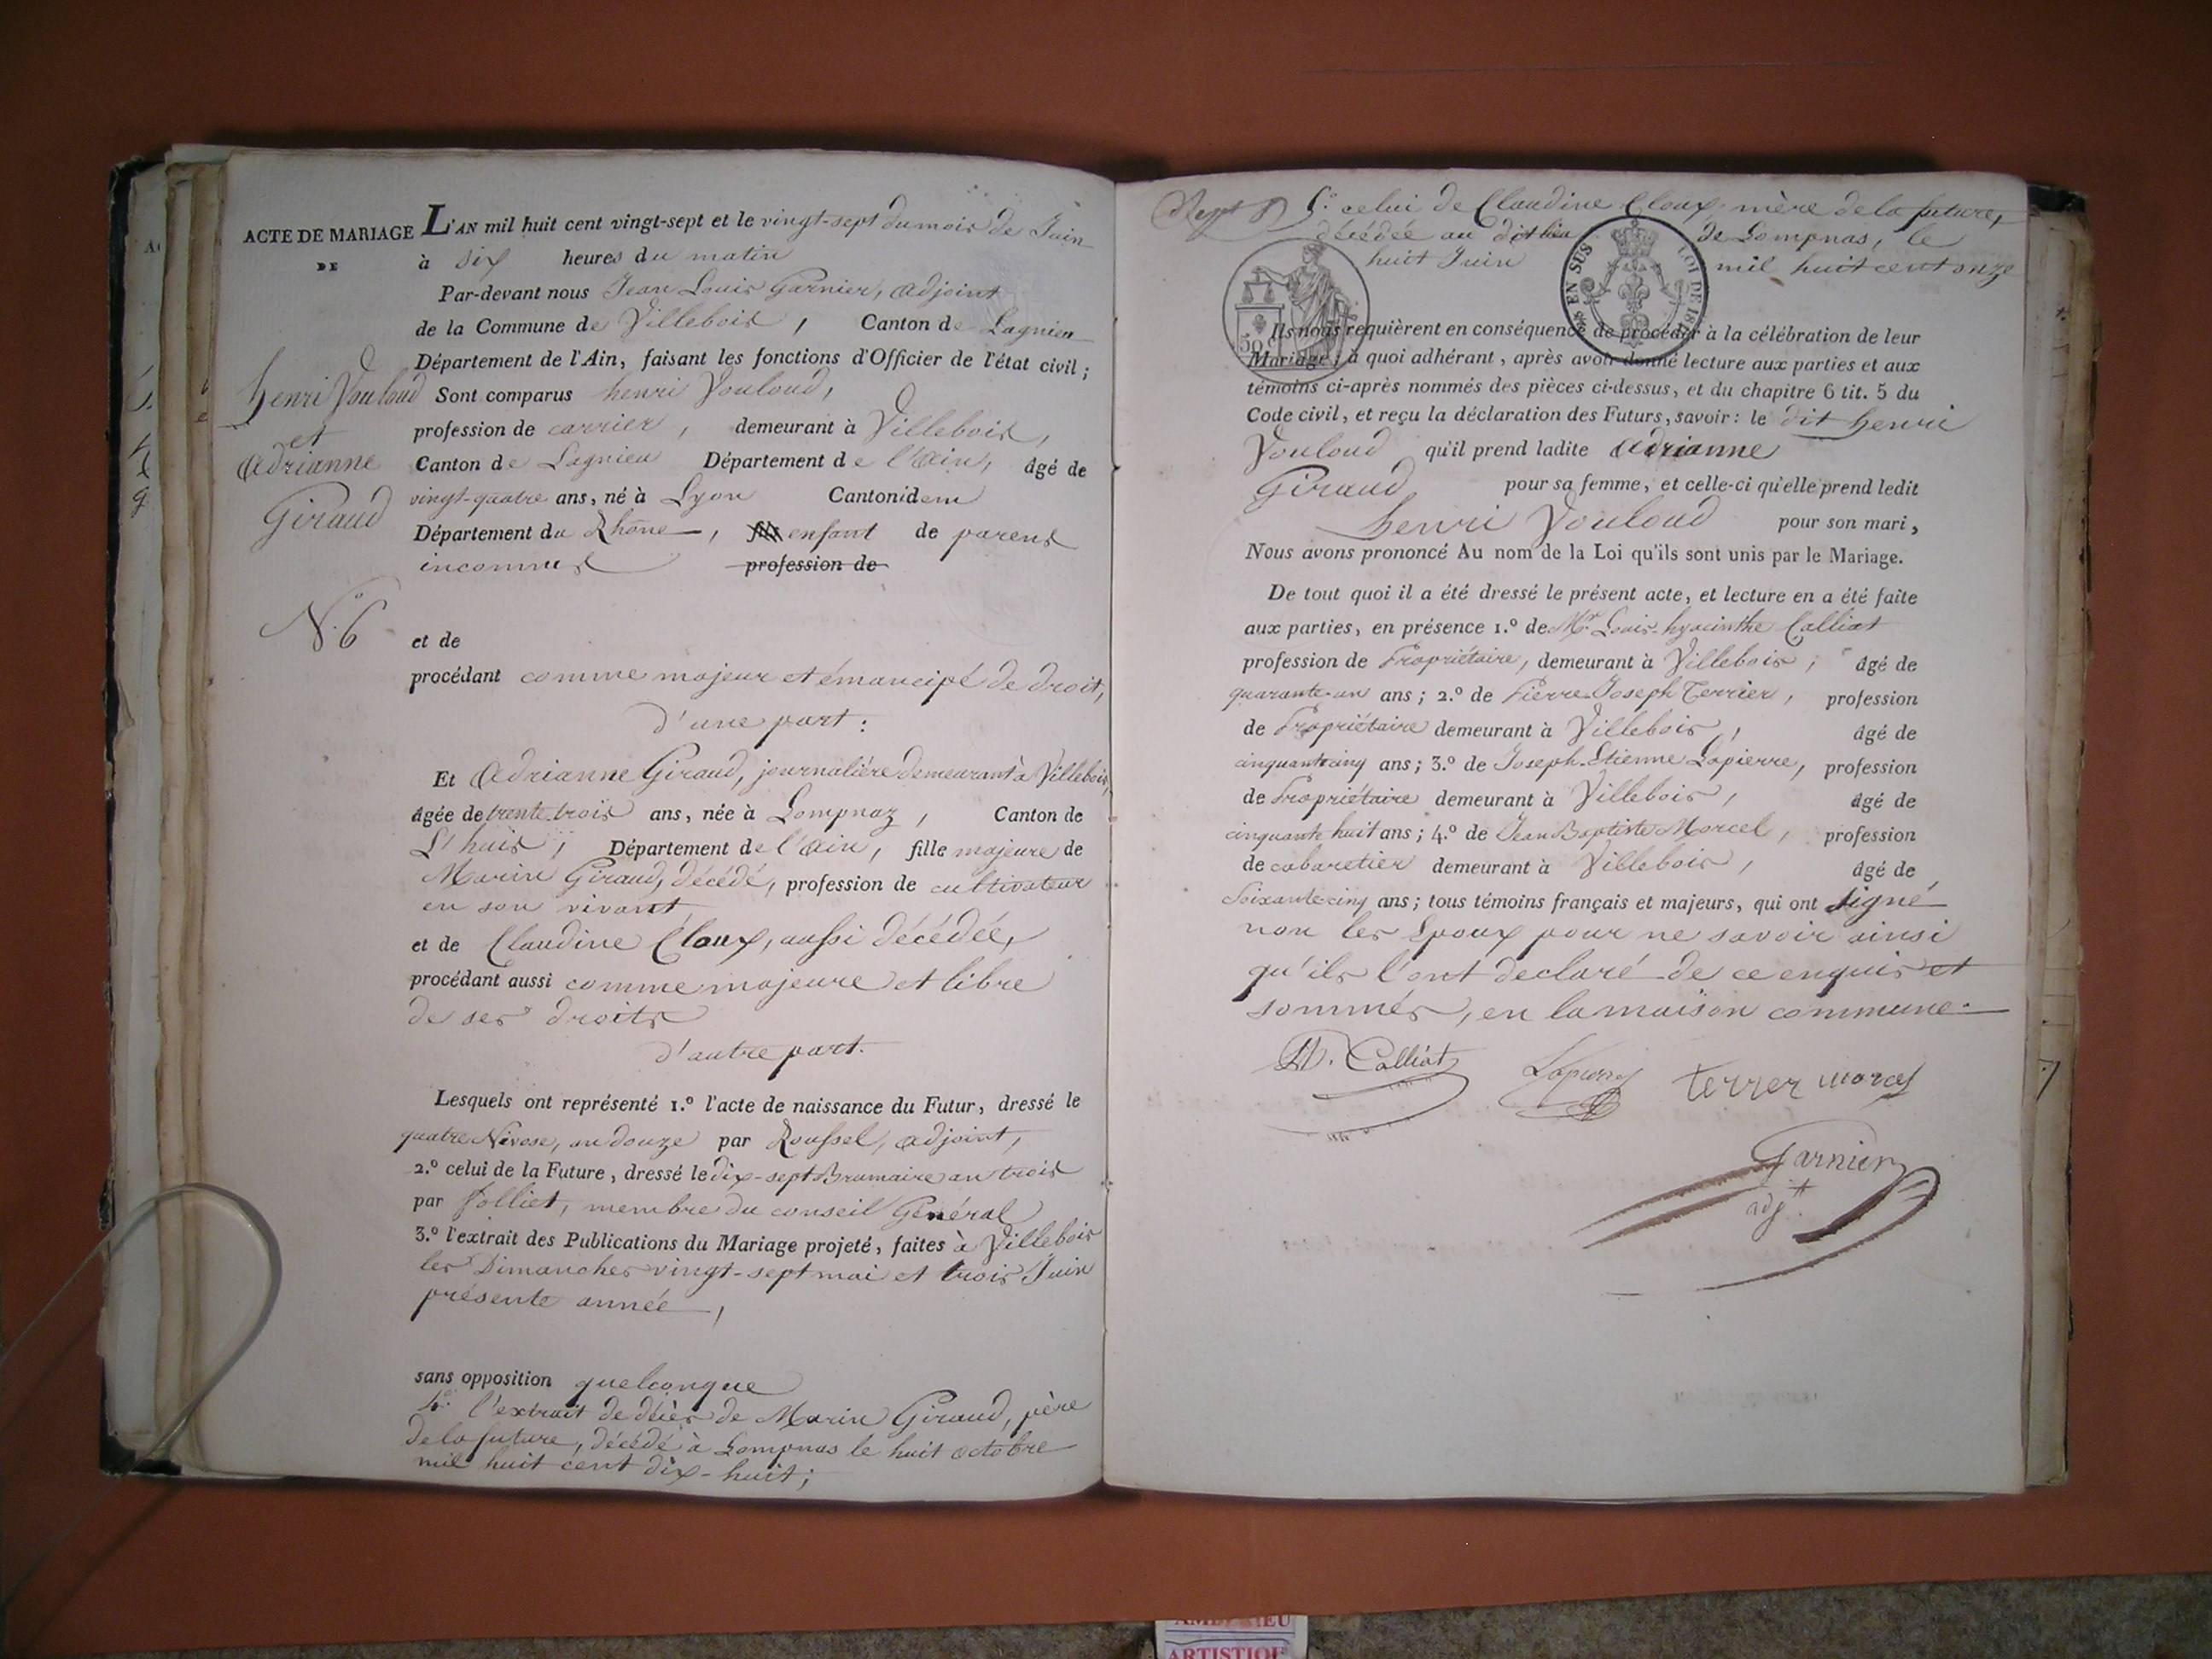 ACTE DE MARIAGE
DE
henri Vouloud
et
Adrianne
Giraud
N.º 6
L'AN mil huit cent vingt-sept et le vingt-sept du mois de Juin
à six heures du matin
Par-devant nous Jean Louis Garnier, adjoint
de la Commune de Villebois, Canton de Lagnieu
Département de l'Ain, faisant les fonctions d'Officier de l'état civil;
Sont comparus henri Vouloud,
profession de carrier, demeurant à Villebois,
Canton de Lagnieu Département de l'Ain, âgé de
vingt-quatre ans, né à Lyon Canton idem
Département du Rhône, fils enfant de parens
inconnus profession de
et de
procédant comme majeur et émancipé de droit,
d'une part:
Et Adrianne Giraud, journalière demeurant à Villebois,
âgée de trente-trois ans, née à Lompnaz, Canton de
Lhuis, Département de l'Ain, fille majeure de
Marin Giraud, décédé, profession de cultivateur
en son vivant
et de Claudine Cloux, aussi décédée,
procédant aussi comme majeure et libre
de ses droits
d'autre part.
Lesquels ont représenté 1.º l'acte de naissance du Futur, dressé le
quatre Nivose, an douze par Roussel, adjoint,
2.º celui de la Future, dressé le dix-sept Brumaire an trois
par Jolliet, membre du conseil Général
3.º l'extrait des Publications du Mariage projeté, faites à Villebois
les Dimanches vingt-sept mai et trois Juin
présente année,
sans opposition quelconque
4.º l'extrait de décès de Marin Giraud, père
de la future, décédé à Lompnas le huit octobre
mil huit cent dix-huit;
5.º celui de Claudine Cloux mère de la future,
décédée au dit lieu de Lompnas, le
huit Juin mil huit cent onze
EN SUS LOI DE
Ils nous requièrent en conséquence de procéder à la célébration de leur
Mariage; à quoi adhérant, après avoir donné lecture aux parties et aux
témoins ci-après nommés des pièces ci-dessus, et du chapitre 6 tit. 5 du
Code civil, et reçu la déclaration des Futurs, savoir: le dit henri
Vouloud qu'il prend ladite Adrianne
Giraud pour sa femme, et celle-ci qu'elle prend ledit
henri Vouloud pour son mari,
Nous avons prononcé Au nom de la Loi qu'ils sont unis par le Mariage.
De tout quoi il a été dressé le présent acte, et lecture en a été faite
aux parties, en présence 1.º de Mr. Louis-hyacinthe Calliat
profession de Propriétaire, demeurant à Villebois, âgé de
quarante-un ans; 2.º de Pierre Joseph Terrier, profession
de Propriétaire demeurant à Villebois, âgé de
cinquante cinq ans; 3.º de Joseph-Etienne Lapierre, profession
de Propriétaire demeurant à Villebois, âgé de
cinquante huit ans; 4.º de Jean Baptiste Morcel, profession
de cabaretier demeurant à Villebois, âgé de
Soixante cinq ans; tous témoins français et majeurs, qui ont signé
non les Epoux pour ne savoir ainsi
qu'ils l'ont declaré de ce enquis et
sommés, en la maison commune.
H. Calliat Lapierre terrer morcel
Garnier
adjt
ARTISTIQUE